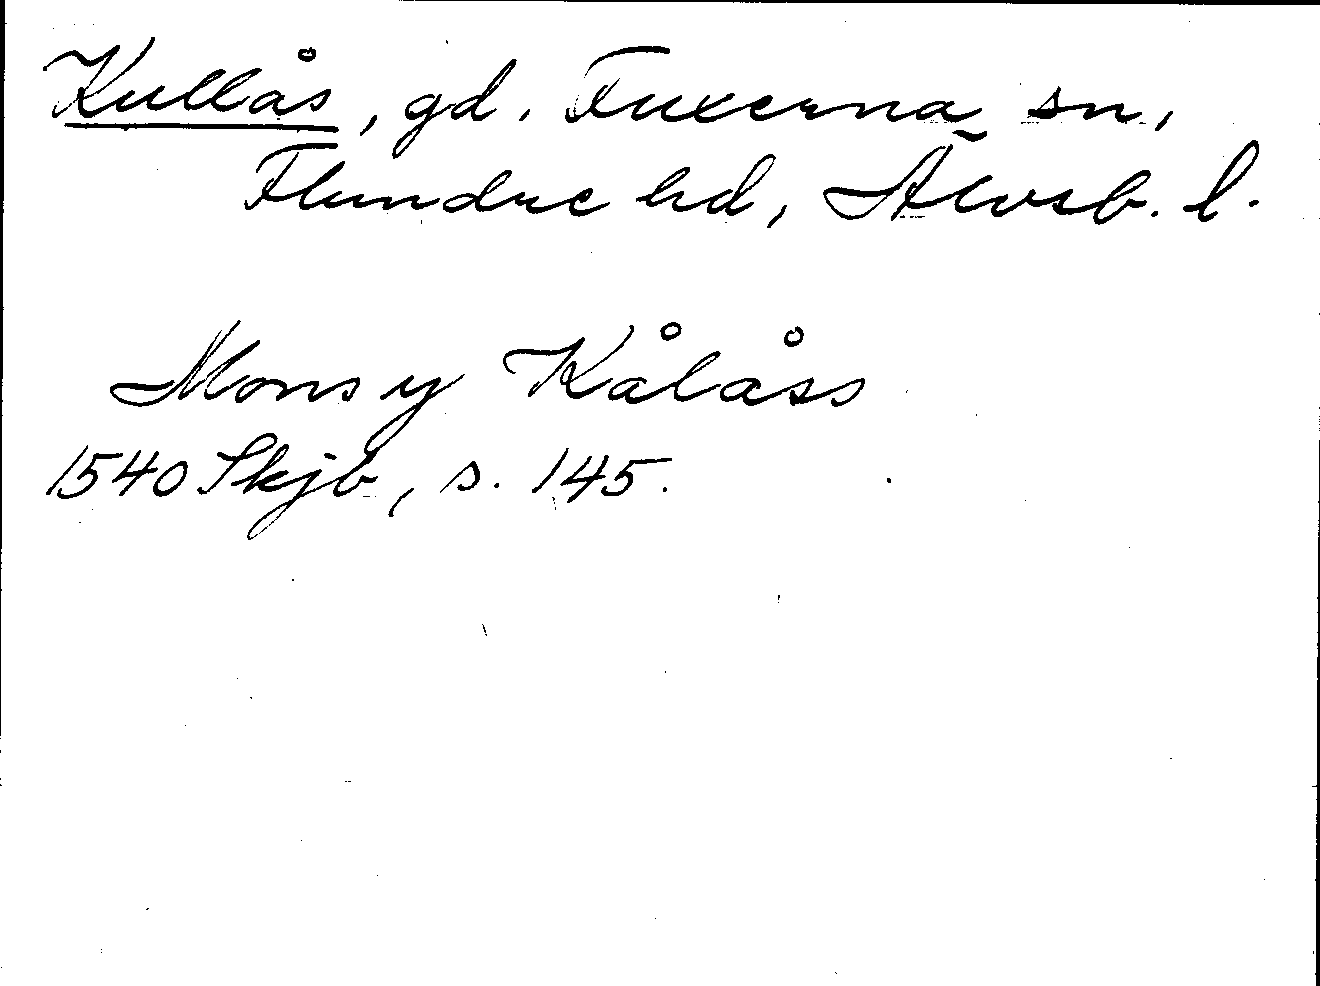 Kullås, gd. Fuxerna sn,
Flundre hd, Älvsb. l.
Mons y Kålåss
1540 Skjb, s. 145.